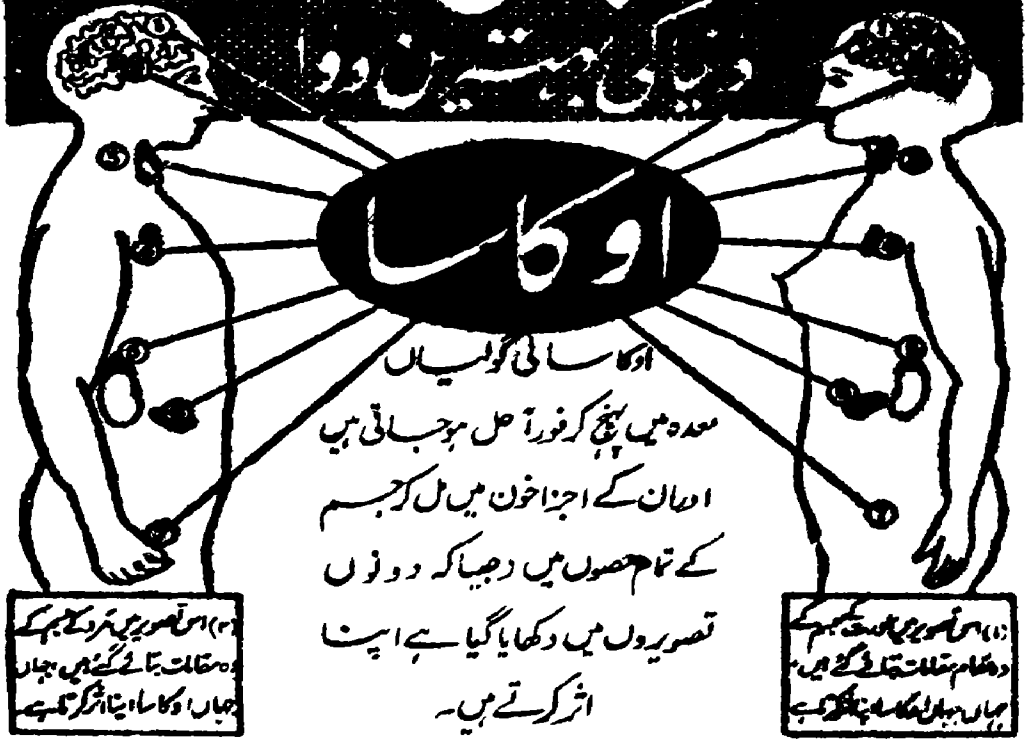 اوکاسا
اوکاسا کی گولیاں
معدہ میں پہنچ کر فوراً حل ہو جاتی ہیں
اور ان کے اجزا خون میں مل کر جسم
کے تمام حصوں میں (جیسا کہ دونوں
تصویروں میں دکھایا گیا ہے اپنا
اثر کرتے ہیں۔
(۱) اس تصویر میں عورت کے جسم کے
وہ تمام مقامات بتائے گئے ہیں۔
جہاں جہاں اوکاسا اپنا اثر کرتا ہے
(۲) اس تصویر میں مرد کے جسم کے
وہ مقامات بتائے گئے ہیں، جہاں
جہاں اوکاسا اپنا اثر کرتا ہے۔